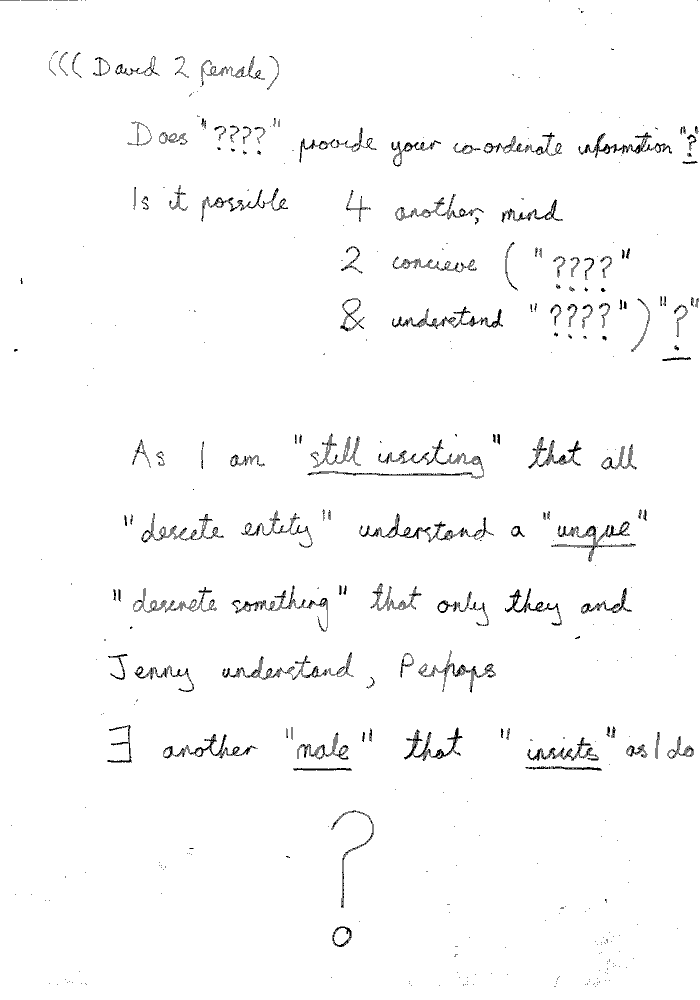 ((( David 2 female)
Does "????" provide your co-ordinate information "?"
Is it possible 4 another, mind
2 concieve ( "????"
& understand "????" ) "?"
As I am "still insisting" that all
"descete entity" understand a "unque"
"descrete something" that only they and
Jenny understand, Perhaps
∃ another "male" that "insists" as I do
?